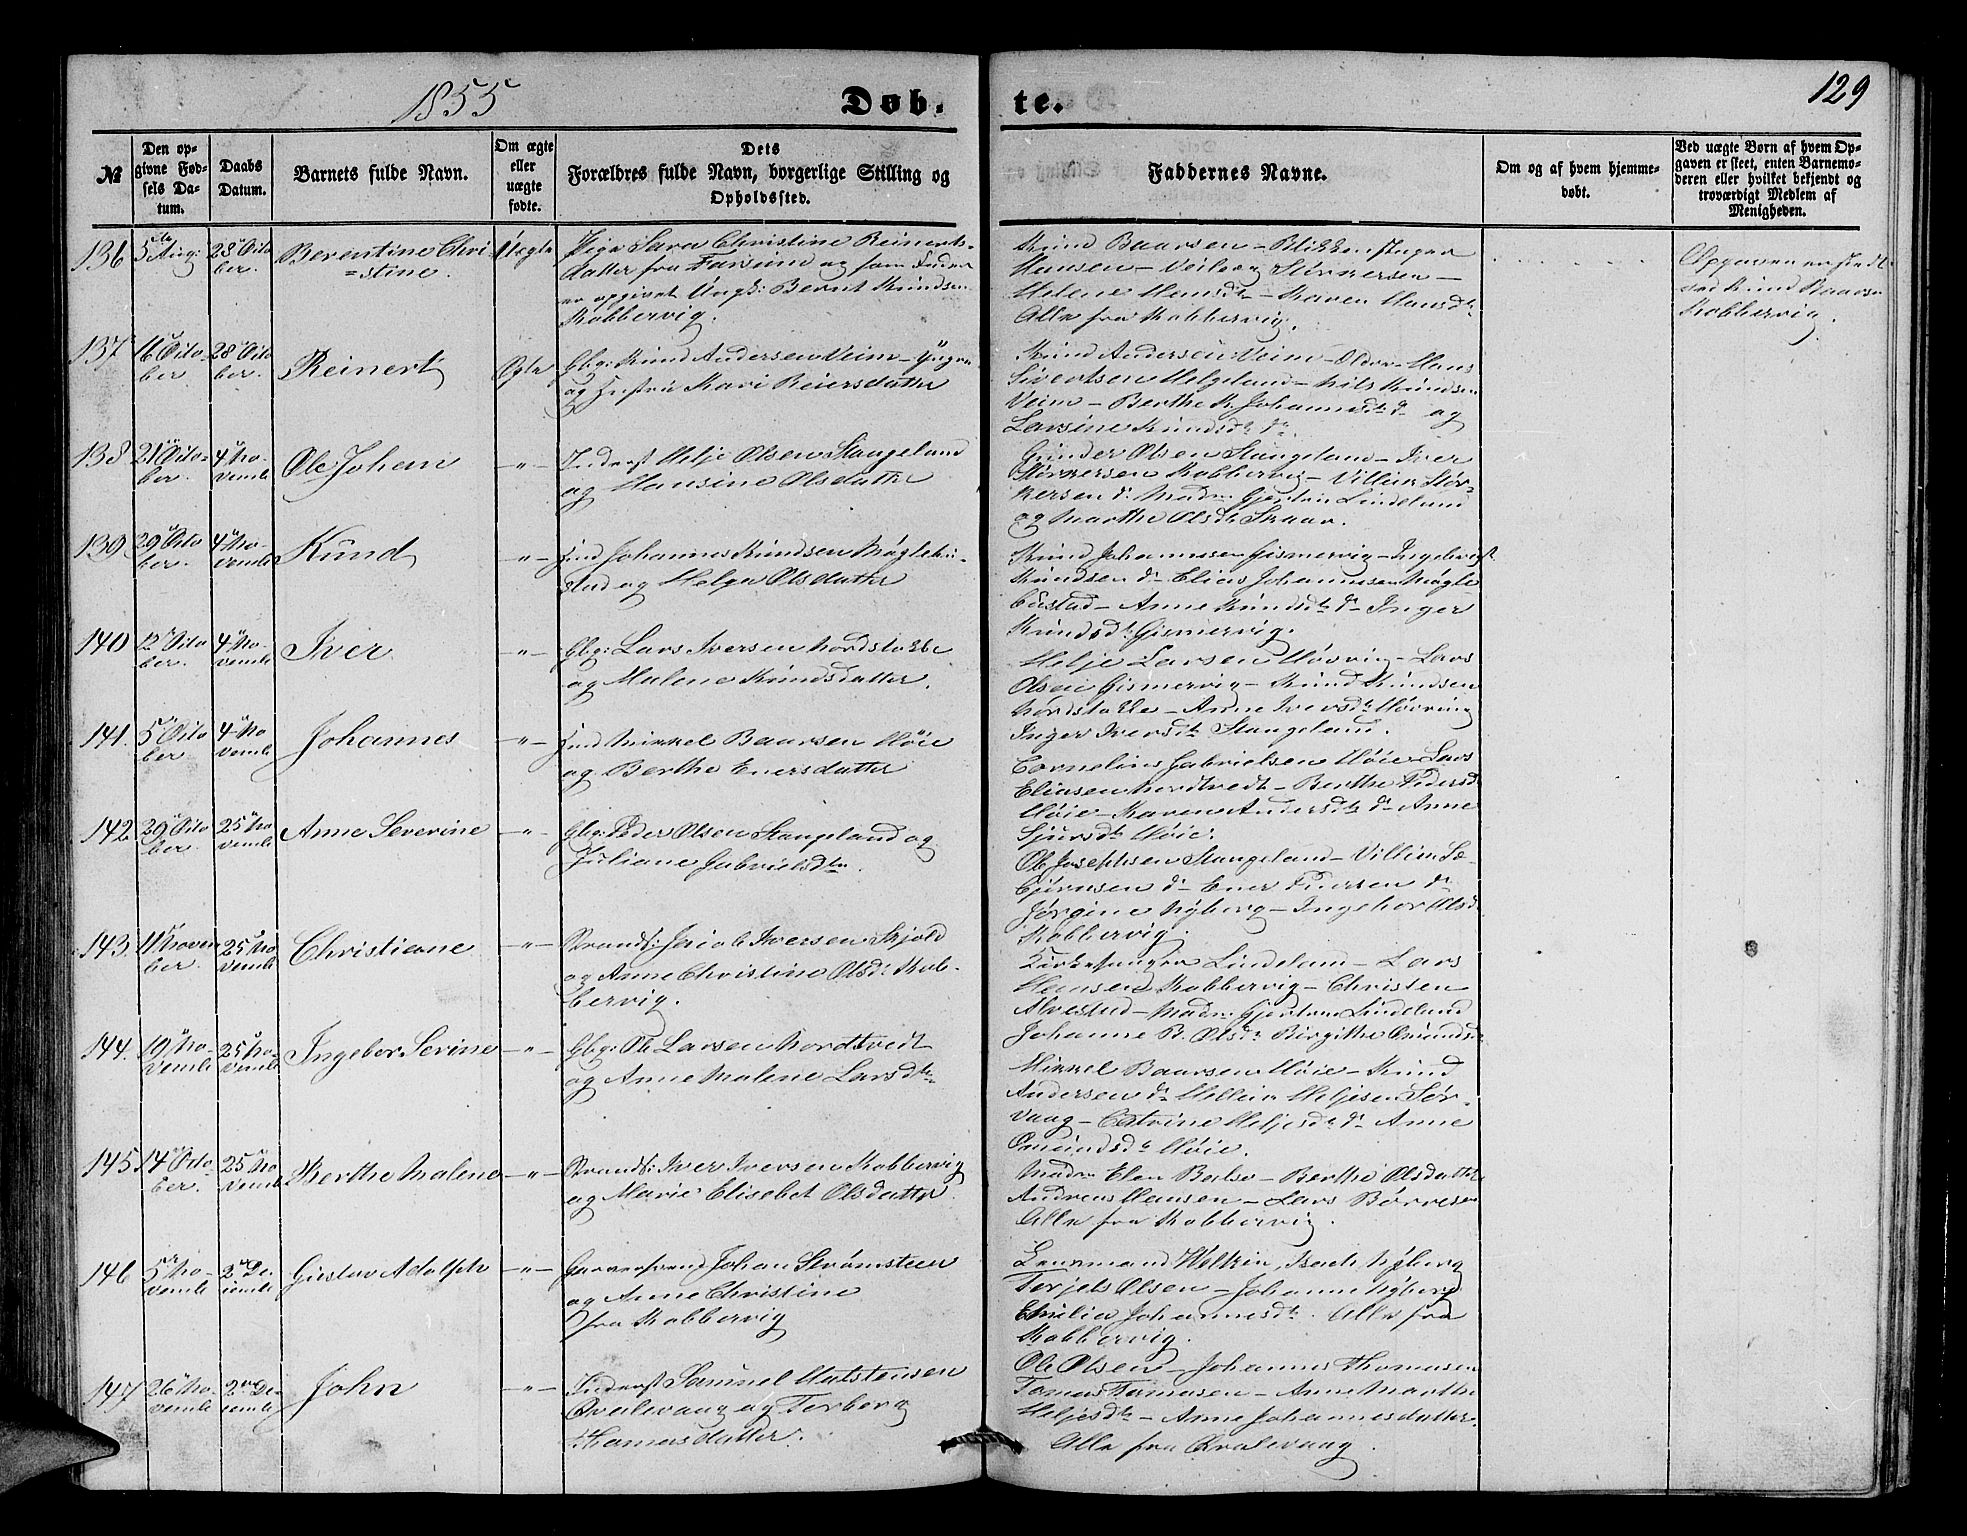 1855
Døb.
te.
129
№
Den op-
givne Fød-
sels Da-
tum.
Daabs
Datum.
Barnets fulde Navn.
Om ægte
eller
uægte
fødte.
Dets
Forældres fulde Navn, borgerlige Stilling og
Opholdssted.
Faddernes Navne.
Om og af hvem hjemme-
døbt.
Ved uægte Børn af hvem Op-
gaven er skeet, enten Barnemo-
deren eller hvilket bekjendt og
troværdigt Medlem af
Menigheden.
136
5te Aug:
28 Octo
ber.
Berentine Chri
=stine.
Uægte
Pige Sara Christine Reinerts-
datter fra Farsund og som Fader
er opgivet Ungk: Bernt Knudsen
Kobbervig.
Knud Baarsen - Blikkenslager
Hansen - Størkersen -
Helene Hansdtr - Karen Hansdtr
Alle fra Kobbervig.
Opgaven er skeet
ved Knud Baarsen
Kobbervig.
137
16 Octo-
ber
28 Octo
ber.
Reinert
Ægte
Gbg: Knud Andersen Veim -
og Hustru Kari Reiersdatter
Knud Andersen Veim - Hans
Sivertsen Helgeland - Nils Knudsen
Veim - Berthe K. Johannesdtr do og
Larsine Knudsdtr do.
138
21 Octo-
ber.
4 No-
vemb
Ole Johan
-"-
Inderst Helje Olsen Stangeland
og Hansine Olsdatter
Gunder Olsen Stangeland - Iver
Størkersen Kobbervig - Villem Stør-
kersen do Madm Gjertrui Lindeland
og Marthe Olsdtr Skaar.
139
29 Octo
ber.
4 No-
vemb
Knud
-"-
Hmd Johannes Knudsen Møglebu-
stad og Helga Olsdatter
Knud Johannesen Gismervig - Ingebrigt
Knudsen do Elias Johannesen Møgle
bustad - Anne Knudsdtr do Inger
Knudsdtr Gismervig.
140
12 Octo
ber.
4 No-
vemb
Iver
-"-
Gbg: Lars Iversen Nordstokke
og Malene Knudsdatter.
Helje Larsen Høvring - Lars
Olsen Gismervig - Knud Knudsen
Nordstokke - Anne Iversdtr Høvring
Inger Iversdtr Stangeland.
141.
5 Octo
ber
4 No
vemb
Johannes
-"-
Hmd Mikkel Baarsen Høie
og Berthe Enersdatter
Cornelius Gabrielsen Høie - Lars
Eliasen Nordtvedt - Berthe Pedersdtr
Høie - Karen Andersdtr do Anne
Sjursdtr Høie.
142.
29 Octo
ber.
25 No
vemb
Anne Severine
-"-
Gbg: Peder Olsen Stangeland og
Juliane Gabrielsdtr.
Ole Josephsen Stangeland - Villem Tor-
bjørnsen do Ener Pedersen do
Jørgine Nyberg - Ingebor Olsd
Kobbervig.
143.
11 Novem
ber.
25 No
vemb
Christiane
-"-
Strands: Jacob Iversen Skjold
og Anne Christine Olsdtr Kob-
bervig.
Kirkesanger Lindeland - Lars
Hansen Kobbervig - Christen
Alvestad - Madm Gjertrui Lindeland
Johanne B. Olsdtr Birgithe Omundsd
144.
19 No-
vemb
25 No-
vemb
Ingebor Serine
-"-
Gbg: Ole Larsen Nordtvedt
og Anne Malene Larsdtr
Mikkel Baarsen Høie - Knud
Andersen do Heljesen Sør-
vaag - Heljesdtr do Anne
Omundsdtr Høie.
145.
14 Octo-
ber.
25 No
vemb
Berthe Malene
-"-
Strands: Iver Iversen Kobbervig
og Marie Elisebet Olsdatter
Madm Elen Balso - Berthe Olsdatter
Andreas Hansen - Lars Børresen
Alle fra Kobbervig.
146
5 No-
vemb
2 De-
cemb
Gustav Adolph
-"-
Garversvend Johan Strømsteen
og Anne Christine
fra Kobbervig
Lensmand Isach Nyberg
Terjels Olsen - Johanne Nyberg
Emilia Johannesdtr. Alle fra
Kobbervig.
147
26 No-
vemb
2 De-
cemb
John
-"-
Inderst Samuel Halstensen
Qvalevaag og Torborg
Thomasdatter.
Ole Olsen - Johannes Thomasen
Tomas Tomasen - Anne Marthe
Heljesdtr - Anne Johannesdatter.
Alle fra Qvalevaag.